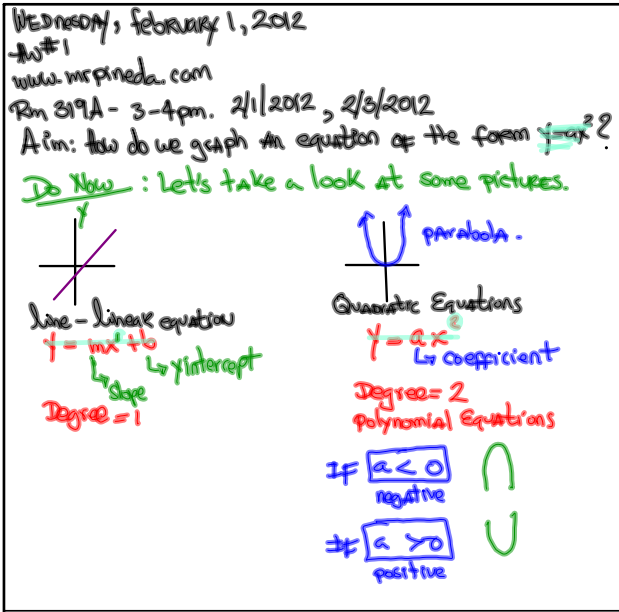 WEDnesDAY, february 1, 2012
HW#1
www.mrpineda.com
Rm 319A - 3-4pm. 2/1/2012, 2/3/2012
Aim: How do we graph An equation of the form y=ax²?
Do Now : Let's take a look at some pictures.
Y
parabola.
line - linear equation
Y = mx¹ + b
slope
y intercept
Degree = 1
Quadratic Equations
Y = ax²
coefficient
Degree = 2
polynomial Equations
IF a < 0
negative
IF a > 0
positive